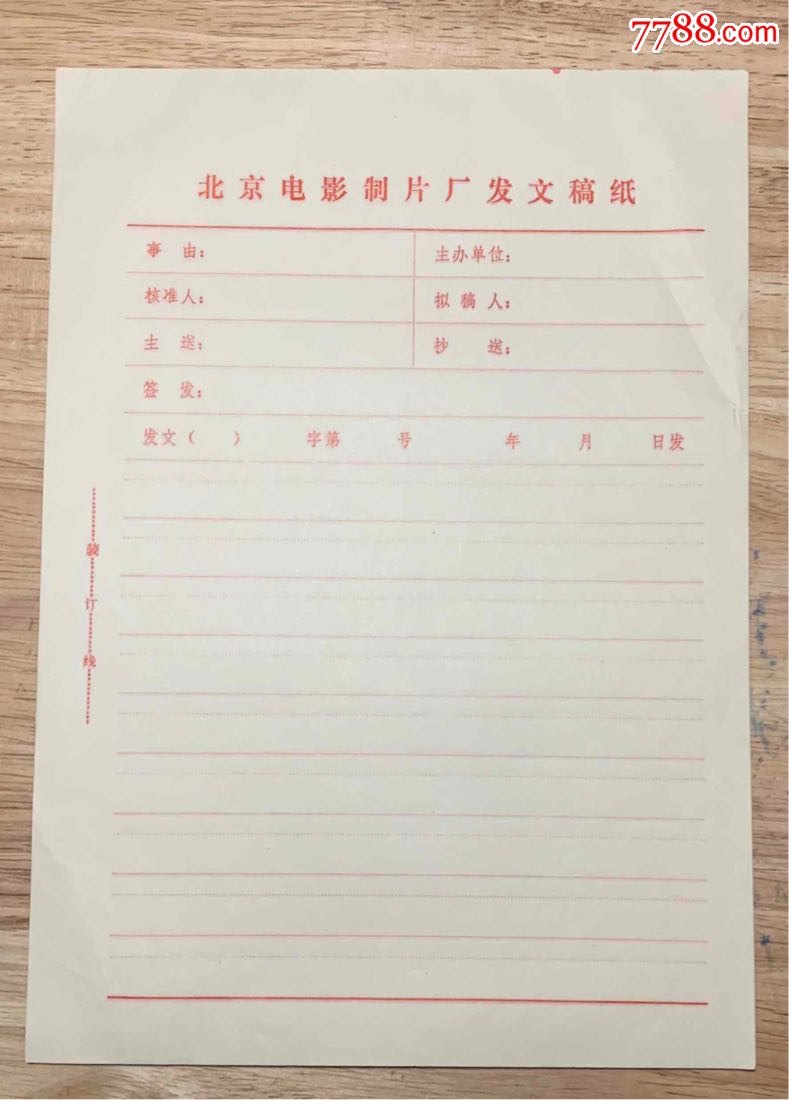 7788.com
北京电影制片厂发文稿纸
事 由： 主办单位：
核准人： 拟稿人：
主 送： 抄 送：
签 发：
发文（ ） 字第 号 年 月 日发
装
订
线